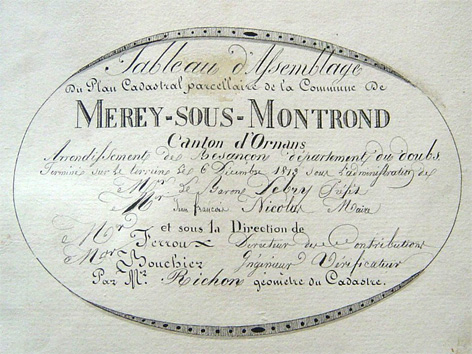 Tableau d'Assemblage
Du Plan Cadastral parcellaire de la Commune De
MEREY-SOUS-MONTROND
Canton d'Ornans
Arrondissement de Besançon département du doubs
Terminé sur le terrein le 6 Décembre 1813 sous l'administration de
Mr. Le Baron Debry Préfet
Mr. Jean françois Nicolas Maire
et sous la Direction de
Mr. Ferroux Directeur des Contributions
Mr. Bouchier Ingénieur Vérificateur
Par Mr. Richon géometre du Cadastre.